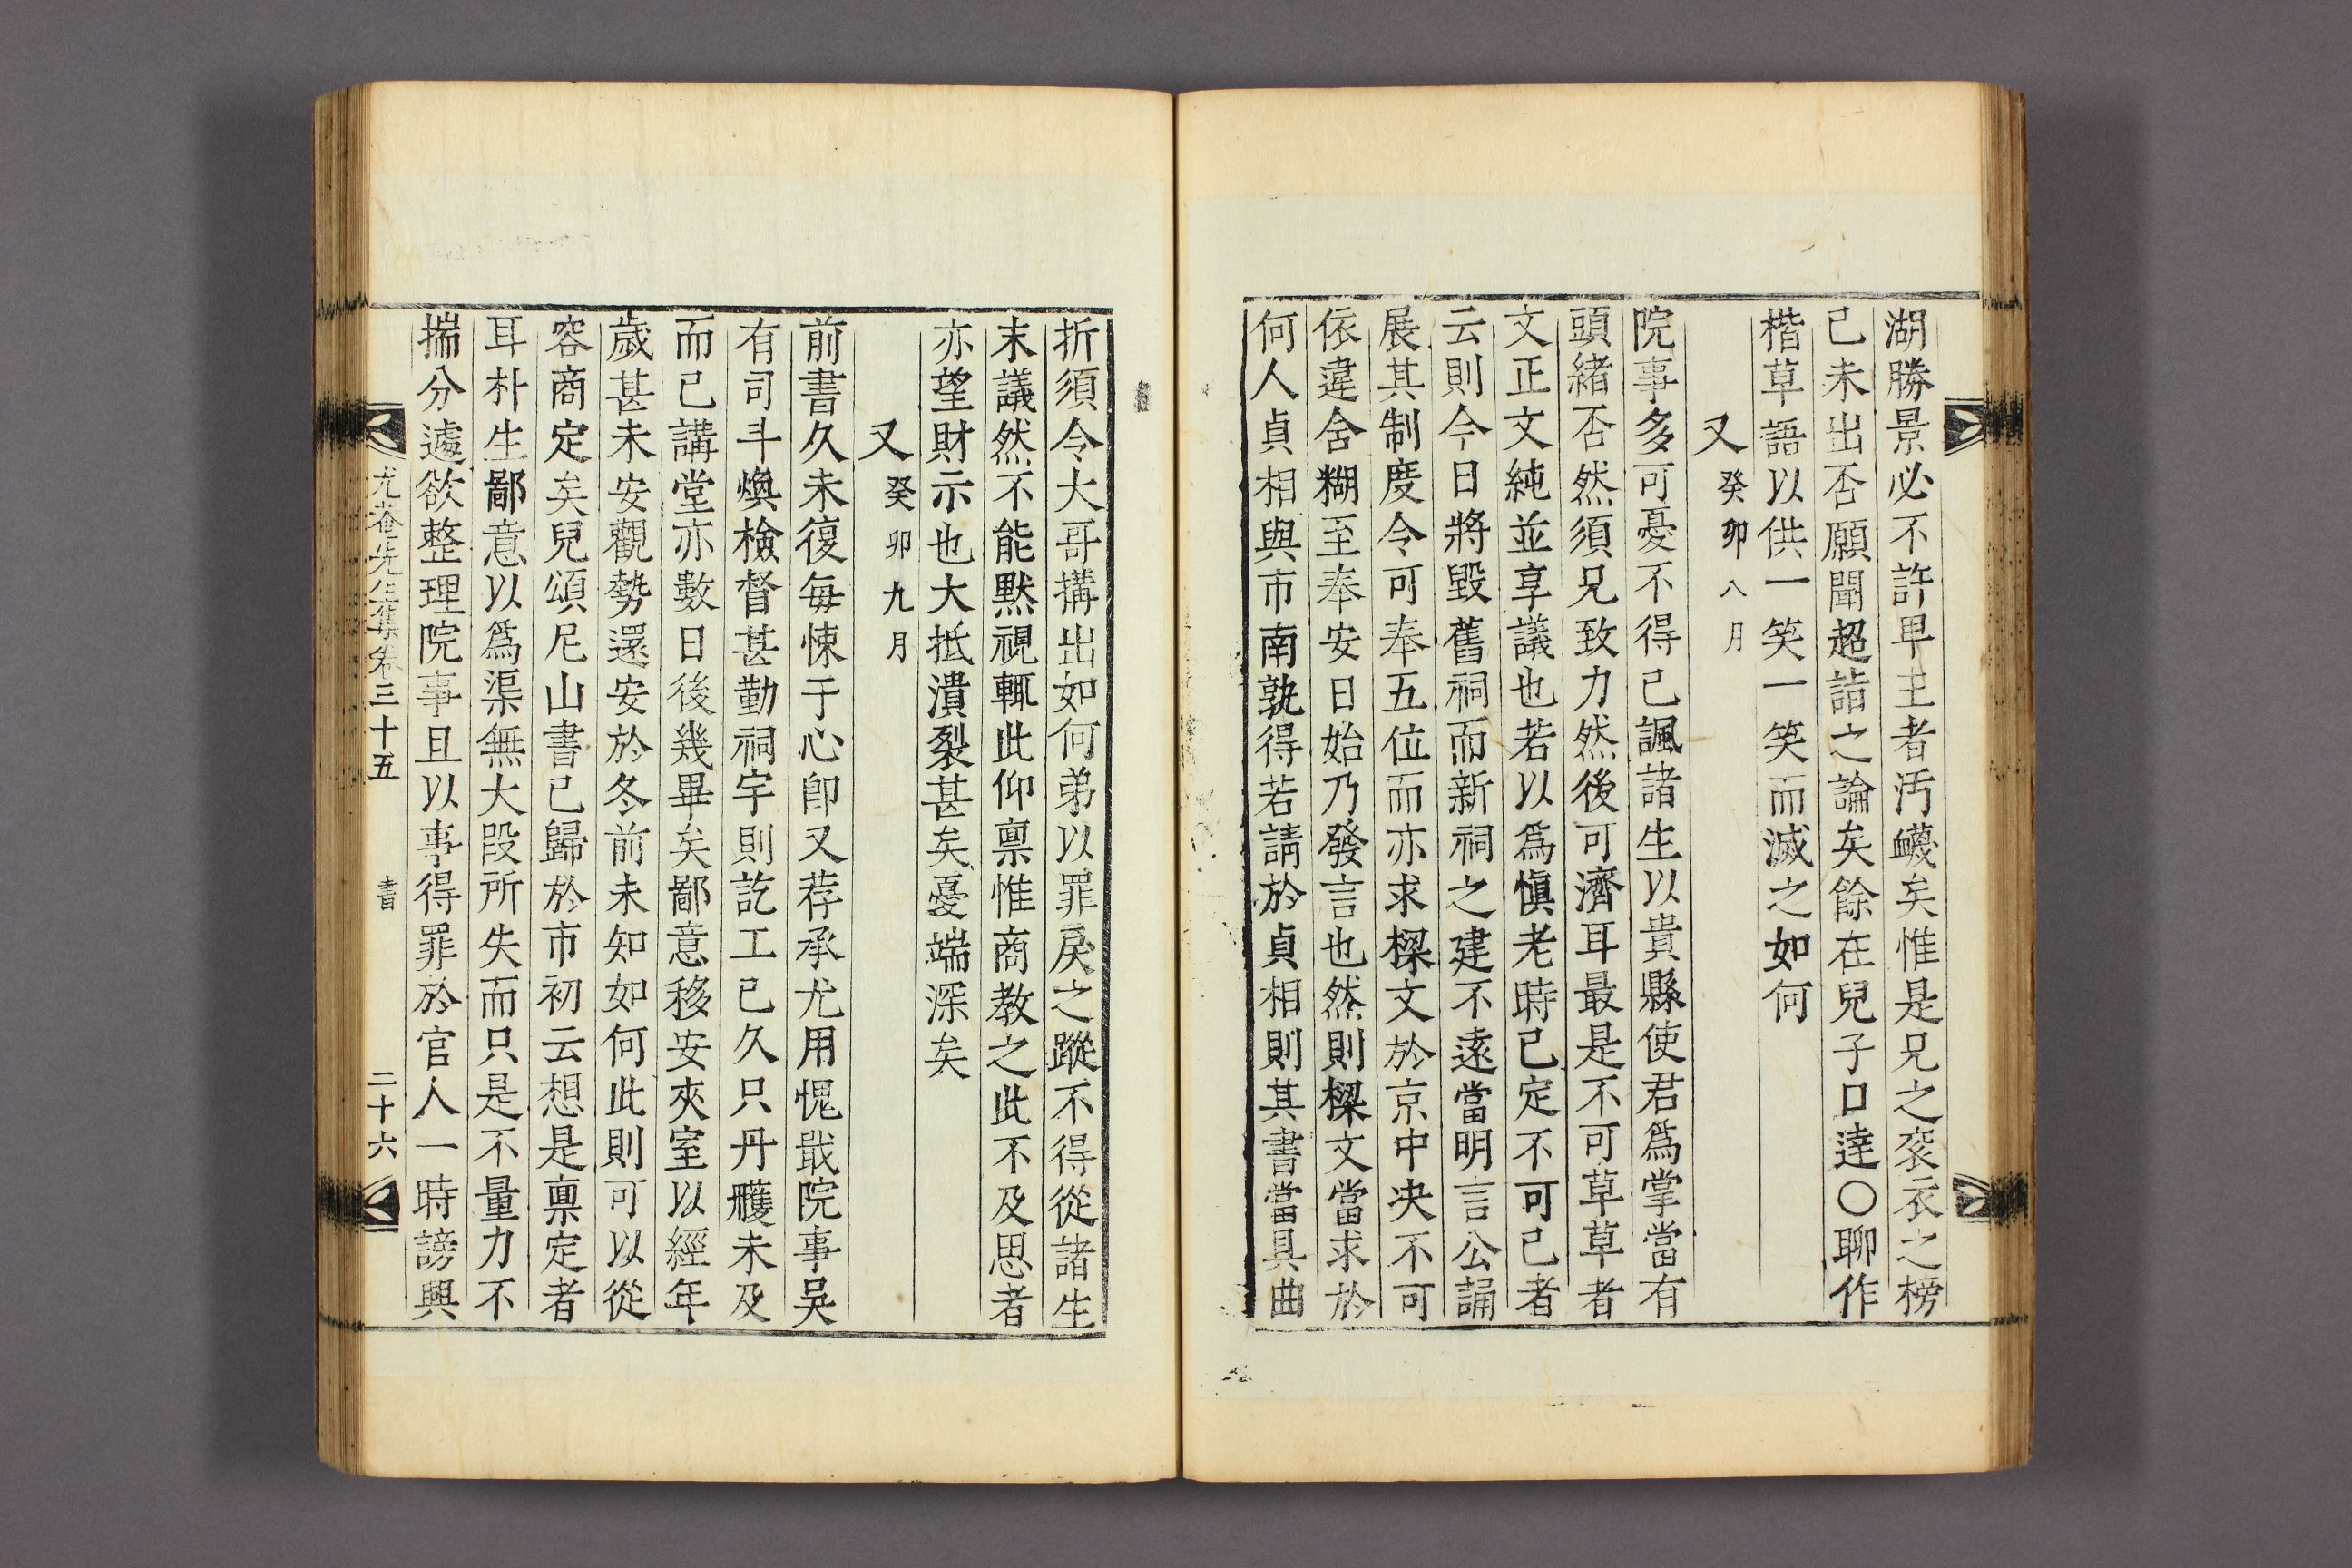 湖勝景必不許早主者汚衊矣惟是兄之袞衣之榜
已未出否願聞超詣之論矣餘在兒子口達○聊作
楷草語以供一笑一笑而滅之如何
又 癸卯八月
院事多可憂不得已諷諸生以貴縣使君爲掌當有
頭緖否然須兄致力然後可濟耳最是不可草草者
文正文純並享議也若以爲愼老時已定不可已者
云則今日將毀舊祠而新祠之建不遠當明言公誦
展其制度令可奉五位而亦求樑文於京中決不可
依違含糊至奉安日始乃發言也然則樑文當求於
何人貞相與市南孰得若請於貞相則其書當具曲
折須令大哥搆出如何弟以罪戾之蹤不得從諸生
末議然不能默視輒此仰禀惟商敎之此不及思者
亦望財示也大抵潰裂甚矣憂端深矣
又 癸卯九月
前書久未復每悚于心卽又荐承尤用愧戢院事吳
有司斗煥檢督甚勤祠宇則訖工已久只丹雘未及
而已講堂亦數日後幾畢矣鄙意移安夾室以經年
歲甚未安觀勢還安於冬前未知如何此則可以從
容商定矣兒頌尼山書已歸於市初云想是稟定者
耳朴生鄙意以爲渠無大段所失而只是不量力不
揣分遽欲整理院事且以事得罪於官人一時謗興
尤菴先生集卷三十五 書 二十六